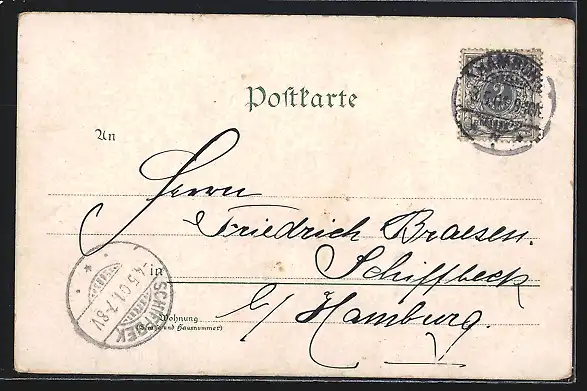 Postkarte
HAMBURG
2
An
Herrn
Friedrich Braesen.
in Schiffbeck
b/ Hamburg.
Wohnung
(Straße und Hausnummer)
SCHIFFBEK
4.5.01.7-8V